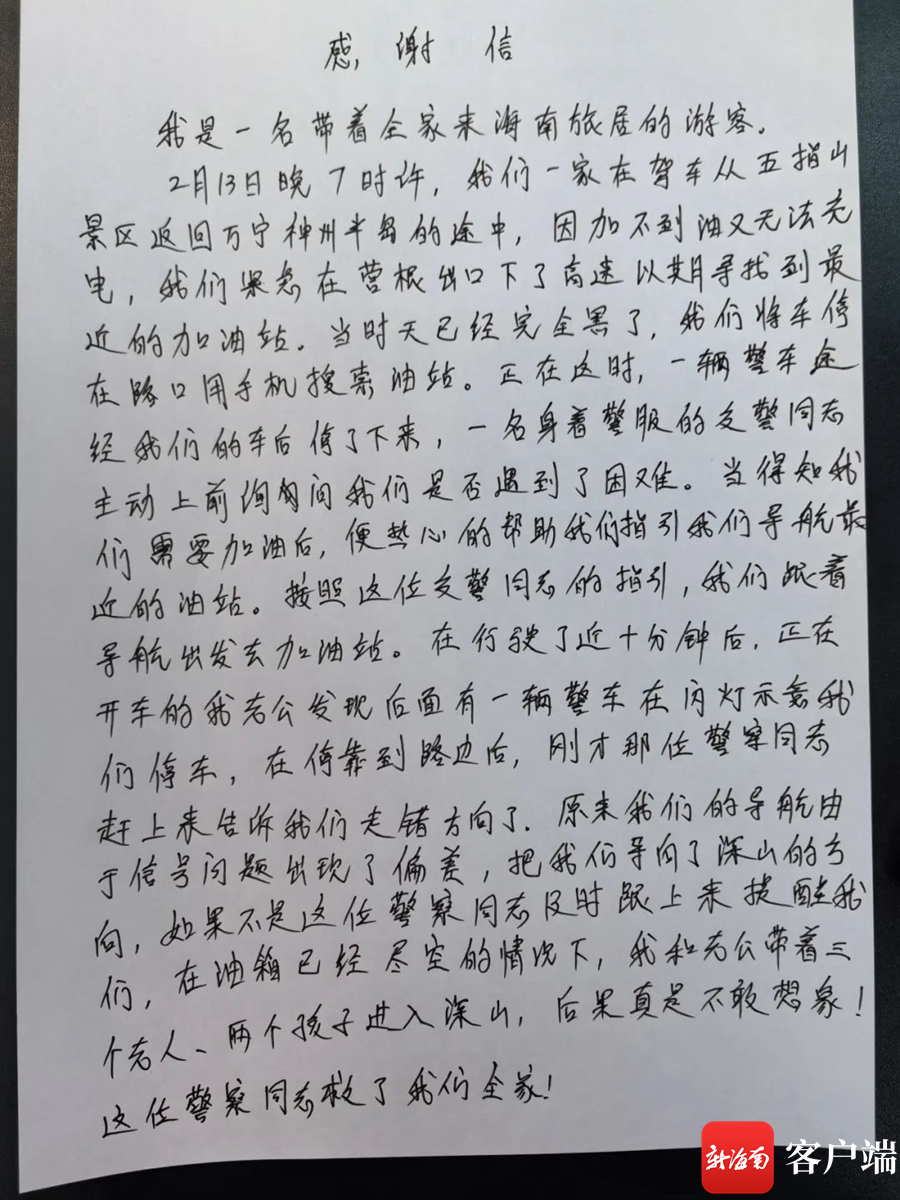 感谢信
我是一名带着全家来海南旅居的游客。
2月13日晚7时许，我们一家在驾车从五指山
景区返回万宁神州半岛的途中，因加不到油又无法充
电，我们紧急在营根出口下了高速以期寻找到最
近的加油站。当时天已经完全黑了，我们将车停
在路口用手机搜索油站。正在这时，一辆警车途
经我们的车后停了下来，一名身着警服的交警同志
主动上前询问我们是否遇到了困难。当得知我
们需要加油后，便热心的帮助我们指引我们导航最
近的油站。按照这位交警同志的指引，我们跟着
导航出发去加油站。在行驶了近十分钟后，正在
开车的我老公发现后面有一辆警车在闪灯示意我
们停车，在停靠到路边后，刚才那位警察同志
赶上来告诉我们走错方向了。原来我们的导航由
于信号问题出现了偏差，把我们导向了深山的方
向，如果不是这位警察同志及时跟上来提醒我
们，在油箱已经尽空的情况下，我和老公带着三
个老人、两个孩子进入深山，后果真是不敢想象！
这位警察同志救了我们全家！
新海南 客户端